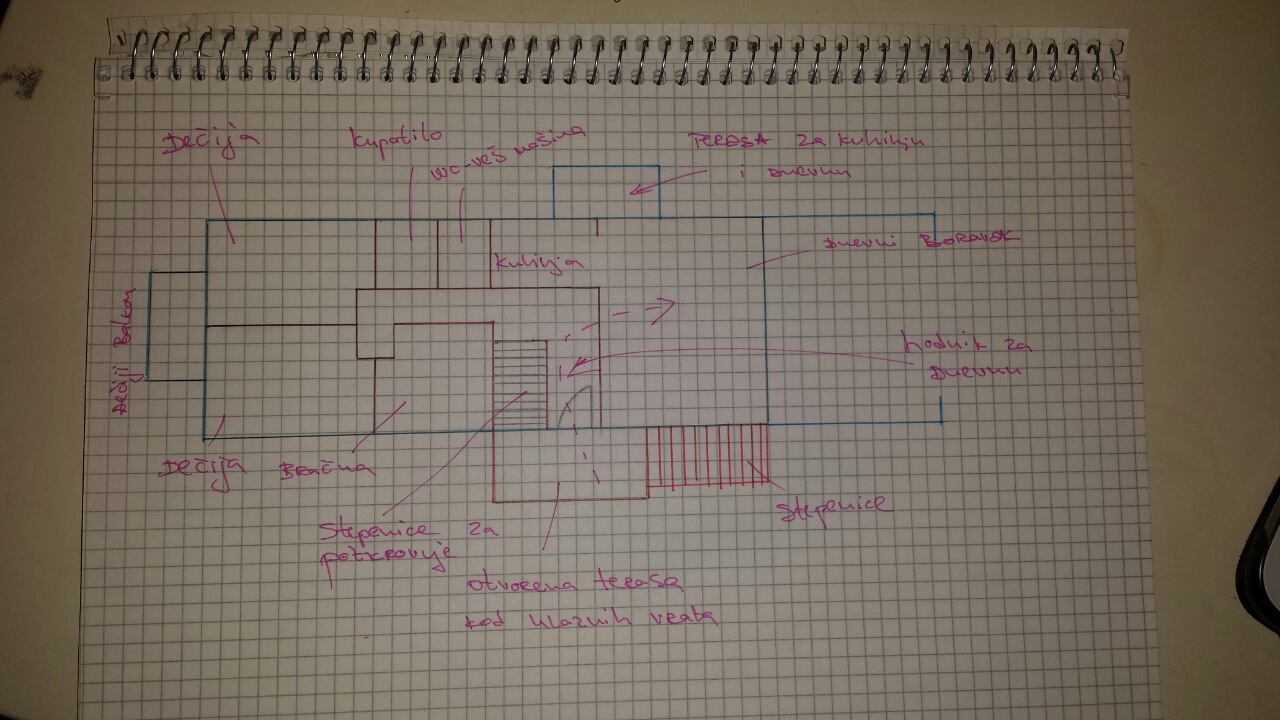 Dečija
kupatilo
wc-veš mašina
TERASA za kuhinju
i Dnevnu
Dnevni BORAVAK
kuhinja
Dečiji Balkon
hodnik za
Dnevnu
Dečija
Bračna
Stepenice za
potkrovlje
Stepenice
otvorena terasa
kod ulaznih vrata